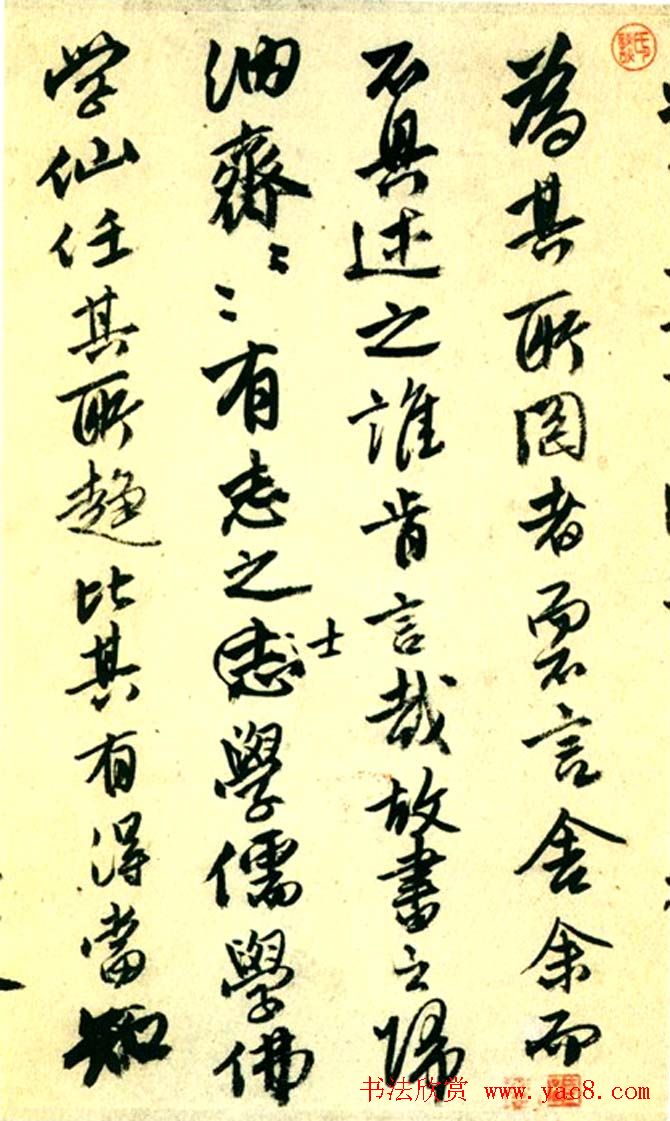 為其所罔者而不言舍余而
不具述之誰肯言哉故書之歸
齋〻〻有志之志士學儒學佛
学仙任其所趨比其有得當知
书法欣赏 www.yac8.com